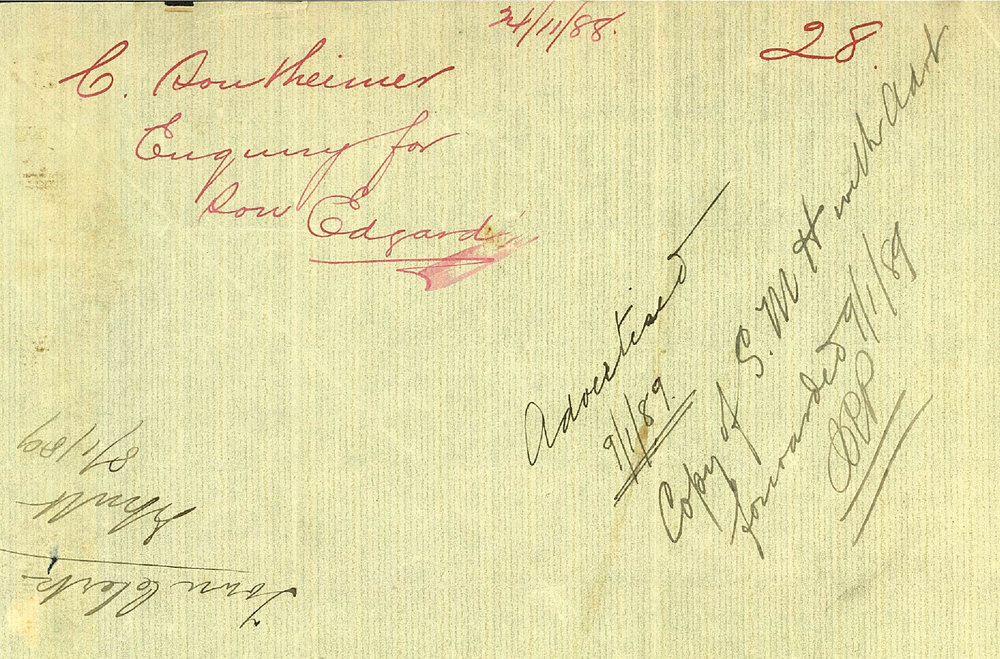 24/11/88.
28.
C. Sontheimer
Enquiry for
Son Edgard
Advertised
9/1/89.
Copy of S.M H with Advt
forwarded 9/1/89
Town Clerk
8/1/89